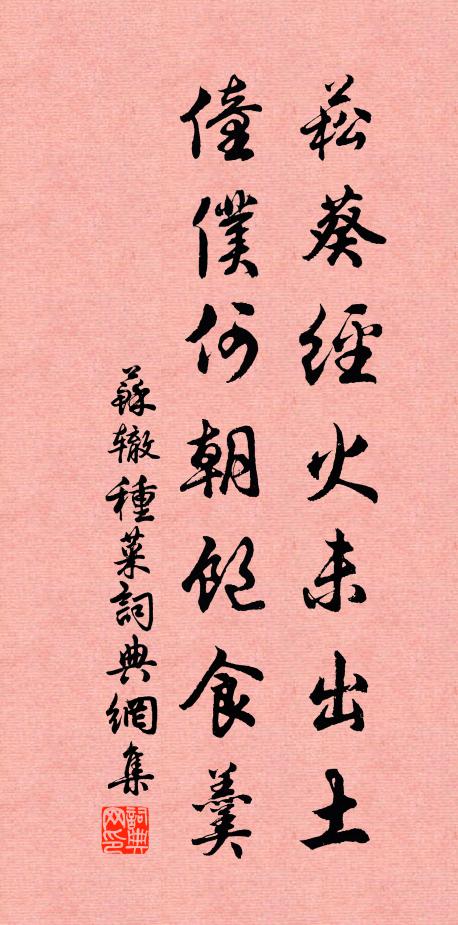 菘葵經火未出土
僮僕何朝飽食羹
蘇辙種菜詞典網集
詞典网印